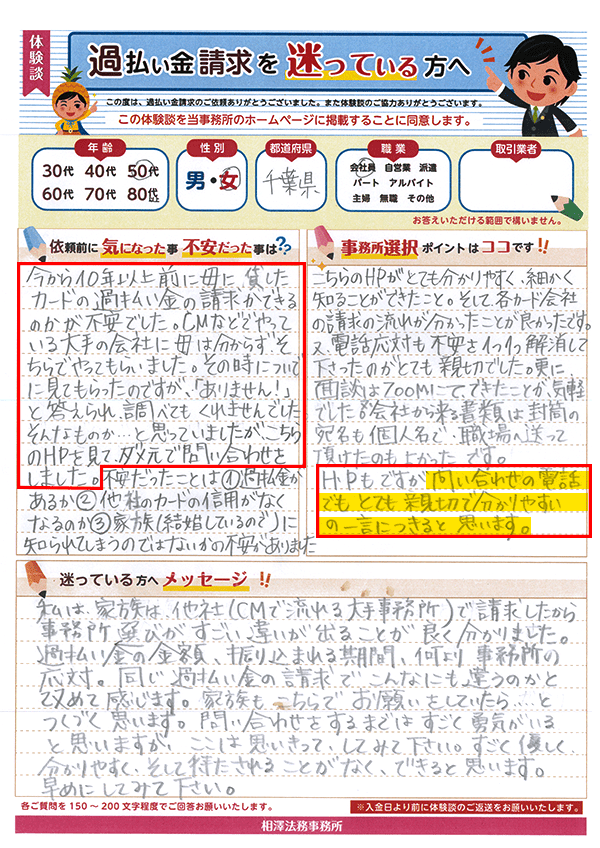 体験談
過払い金請求を迷っている方へ
この度は、過払い金請求のご依頼ありがとうございました。また体験談のご協力ありがとうございます。
この体験談を当事務所のホームページに掲載することに同意します。
年齢
30代 40代 50代
60代 70代 80代以上
性別
男・女
都道府県
千葉県
職業
会社員 自営業 派遣
パート アルバイト
主婦 無職 その他
取引業者
お答えいただける範囲で構いません。
依頼前に気になった事 不安だった事は??
今から10年以上前に母に、貸した
カードの過払い金の請求ができる
のかが不安でした。CMなどでやって
いる大手の会社に母は分からずそ
ちらでやってもらいました。その時についで
に見てもらったのですが、「ありません!」
と答えられ、調べてもくれませんでした
そんなものか…と思っていましたが、こちら
のHPを見て、ダメ元で問い合わせを
しました。不安だったことは①過払金が
あるか②他社のカードの信用がなく
なるのか③家族(結婚しているので)に
知られてしまうのではないかの不安がありました
事務所選択ポイントはココです!!
こちらのHPがとても分かりやすく、細かく
知ることができたこと。そして、各カード会社
の請求の流れが分かったことが良かったです。
又、電話応対も不安を1つ1つ解消して
下さったのがとても親切でした。更に
面談はZOOMにて、できたことが、気軽
でした。会社から来る書類は封筒の
宛名も個人名で、職場へ送って
頂けたのもよかったです。
HPもですが問い合わせの電話
でも、とても親切で分かりやすい
の一言につきると思います。
迷っている方へメッセージ!!
私は、家族は、他社(CMで流れる大手事務所)で請求したから
事務所選びがすごい違いが出ることが良く分かりました。
過払い金の金額、振り込まれる期間、何より事務所の
応対。同じ過払い金の請求でこんなにも違うのかと
改めて感じます。家族もこちらでお願いをしていたら…と
つくづく思います。問い合わせをするまではすごく勇気がいる
と思いますが、ここは思いきって、してみて下さい。すごく優しく、
分かりやすく、そして待たされることがなく、できると思います。
早めにしてみて下さい。
各ご質問を150~200文字程度でご回答お願いいたします。
※入金日より前に体験談のご返送をお願いいたします。
相澤法務事務所